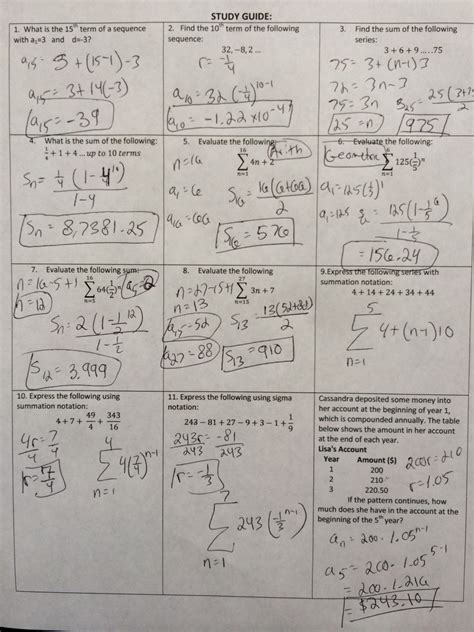 STUDY GUIDE:
1. What is the 15th term of a sequence
with a₁=3 and d=-3?
a₁₅ = 3 + (15-1)-3
a₁₅ = 3 + 14(-3)
a₁₅ = -39
2. Find the 10th term of the following
sequence:
32, -8, 2 ...
r = -1/4
a₁₀ = 32(-1/4)^10-1
a₁₀ = -1.22 x10^-4
3. Find the sum of the following
series:
3 + 6 + 9 .....75
75 = 3 + (n-1)3
75 = 3n
25 = n
975
4. What is the sum of the following:
1/4 + 1 + 4 ... up to 10 terms
Sn = 1/4 (1-4^10)
1-4
Sn = 8,7381.25
5. Evaluate the following
Arith
n=16
16 ∑ n=1 4n + 2
a₁ = 6
a₁₆ = 66
S₁₆ = 16(6+66)
2
S₁₆ = 576
6. Evaluate the following:
Geometric
6 ∑ n=1 125(1/5)^n
125(1-1/5^6)
1-1/5
= 156.24
7. Evaluate the following sum:
n = 16-5+1
n = 12
16 ∑ n=5 64(1/2)^n
a₅ = 2
Sn = 2(1-1/2^12)
1-1/2
S₁₂ = 3.999
8. Evaluate the following
n = 27-15+1
n = 13
27 ∑ n=15 3n + 7
a₁₅ = 52
a₂₇ = 88
S₁₃ = 13(52+88)
2
S₁₃ = 910
9.Express the following series with
summation notation:
4 + 14 + 24 + 34 + 44
5 ∑ n=1 4+(n-1)10
10. Express the following using
summation notation:
4 + 7 + 49/4 + 343/16
4r = 7
r = 7/4
4 ∑ n=1 4(7/4)^n-1
11. Express the following using sigma
notation:
243 - 81 + 27 - 9 + 3 - 1 + 1/9
243r = -81
243 243
r = -1/3
7 ∑ n=1 243(-1/3)^n-1
Cassandra deposited some money into
her account at the beginning of year 1,
which is compounded annually. The table
below shows the amount in her account
at the end of each year.
Lisa's Account
Year Amount ($)
1 200
2 210
3 220.50
200r = 210
r = 1.05
If the pattern continues, how
much does she have in the account at the
beginning of the 5th year?
an = 200 · 1.05^n-1
a₅ = 200 · 1.05^5-1
= 200 · 1.216
= $243.10